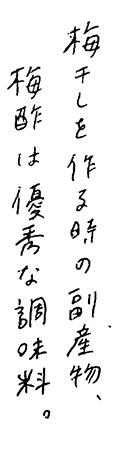 梅干しを作る時の副産物、
梅酢は優秀な調味料。